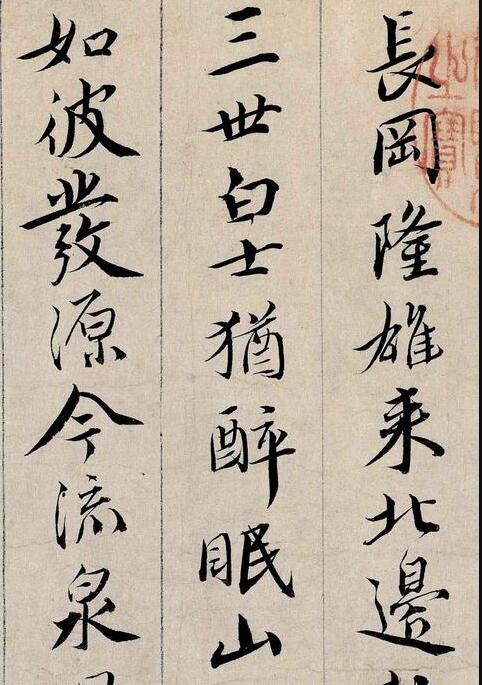 長岡隆雄来北邊
三世白士猶醉眠山
如彼發源今流泉